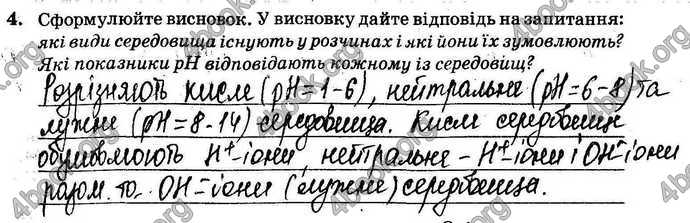 4. Сформулюйте висновок. У висновку дайте відповідь на запитання:
які види середовища існують у розчинах і які йони їх зумовлюють?
Які показники pH відповідають кожному із середовищ?
Розрізняють кисле (pH=1-6), нейтральне (pH=6-8) та
лужне (pH=8-14) середовища. Кисле середовище
обумовлюють H⁺-іони, нейтральне - H⁺-іони і OH⁻-іони
разом, то OH⁻-іони (лужне) середовища.